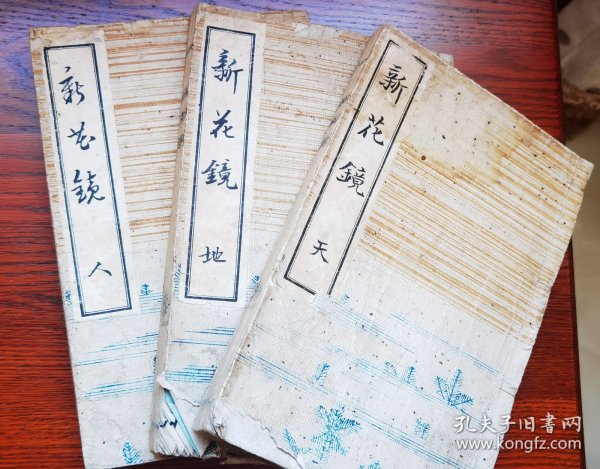 新花鏡 人
新花鏡 地
新花鏡 天
孔夫子旧书网
www.kongfz.com